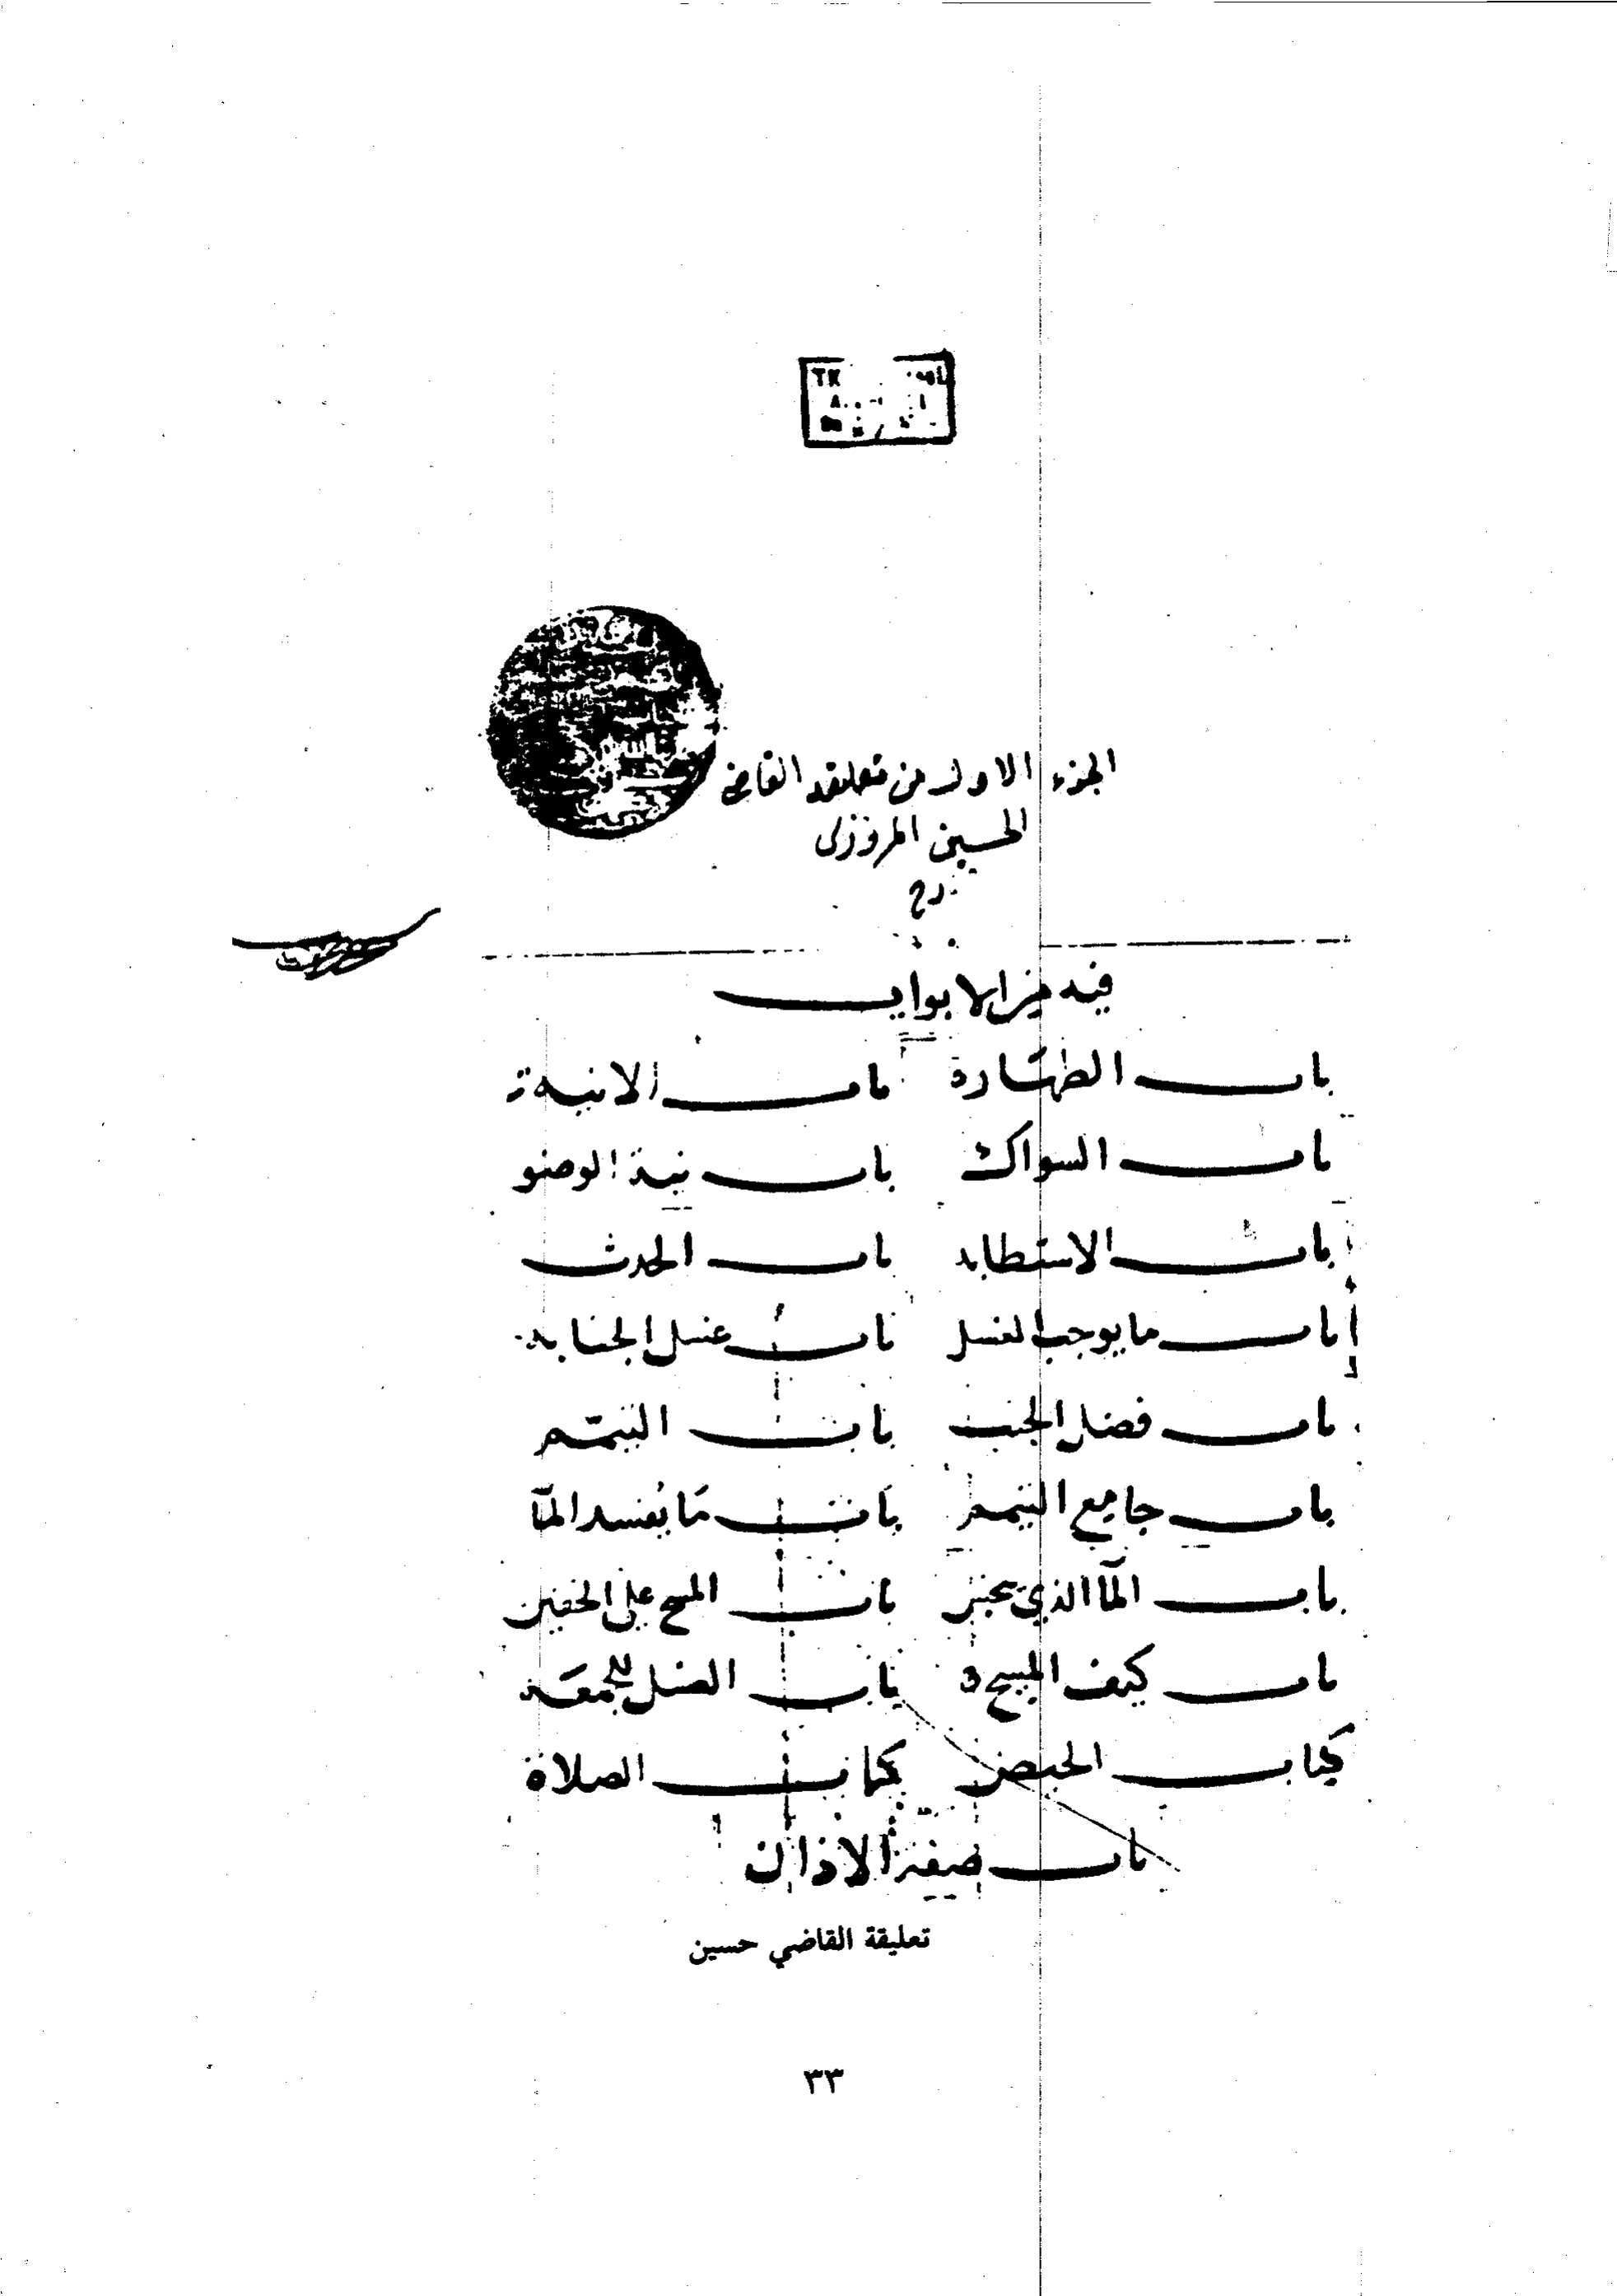 الجزء الاول من تعليقه القاضى
الحسين المروزى
رح
فيه من الابواب
باب الطهارة باب الانية
باب السواك باب نية الوضو
باب الاستطابه باب الحدث
باب ما يوجب الغسل باب غسل الجنابه
باب فضل الجنب باب التيمم
باب جامع التيمم باب ما يفسد المآ
باب المآ الذي ينجس باب المسح على الخفين
باب كيف المسح باب الغسل للجمعة
كتاب الحيض كتاب الصلاة
باب صفة الاذان
تعليقة القاضي حسين
٣٣